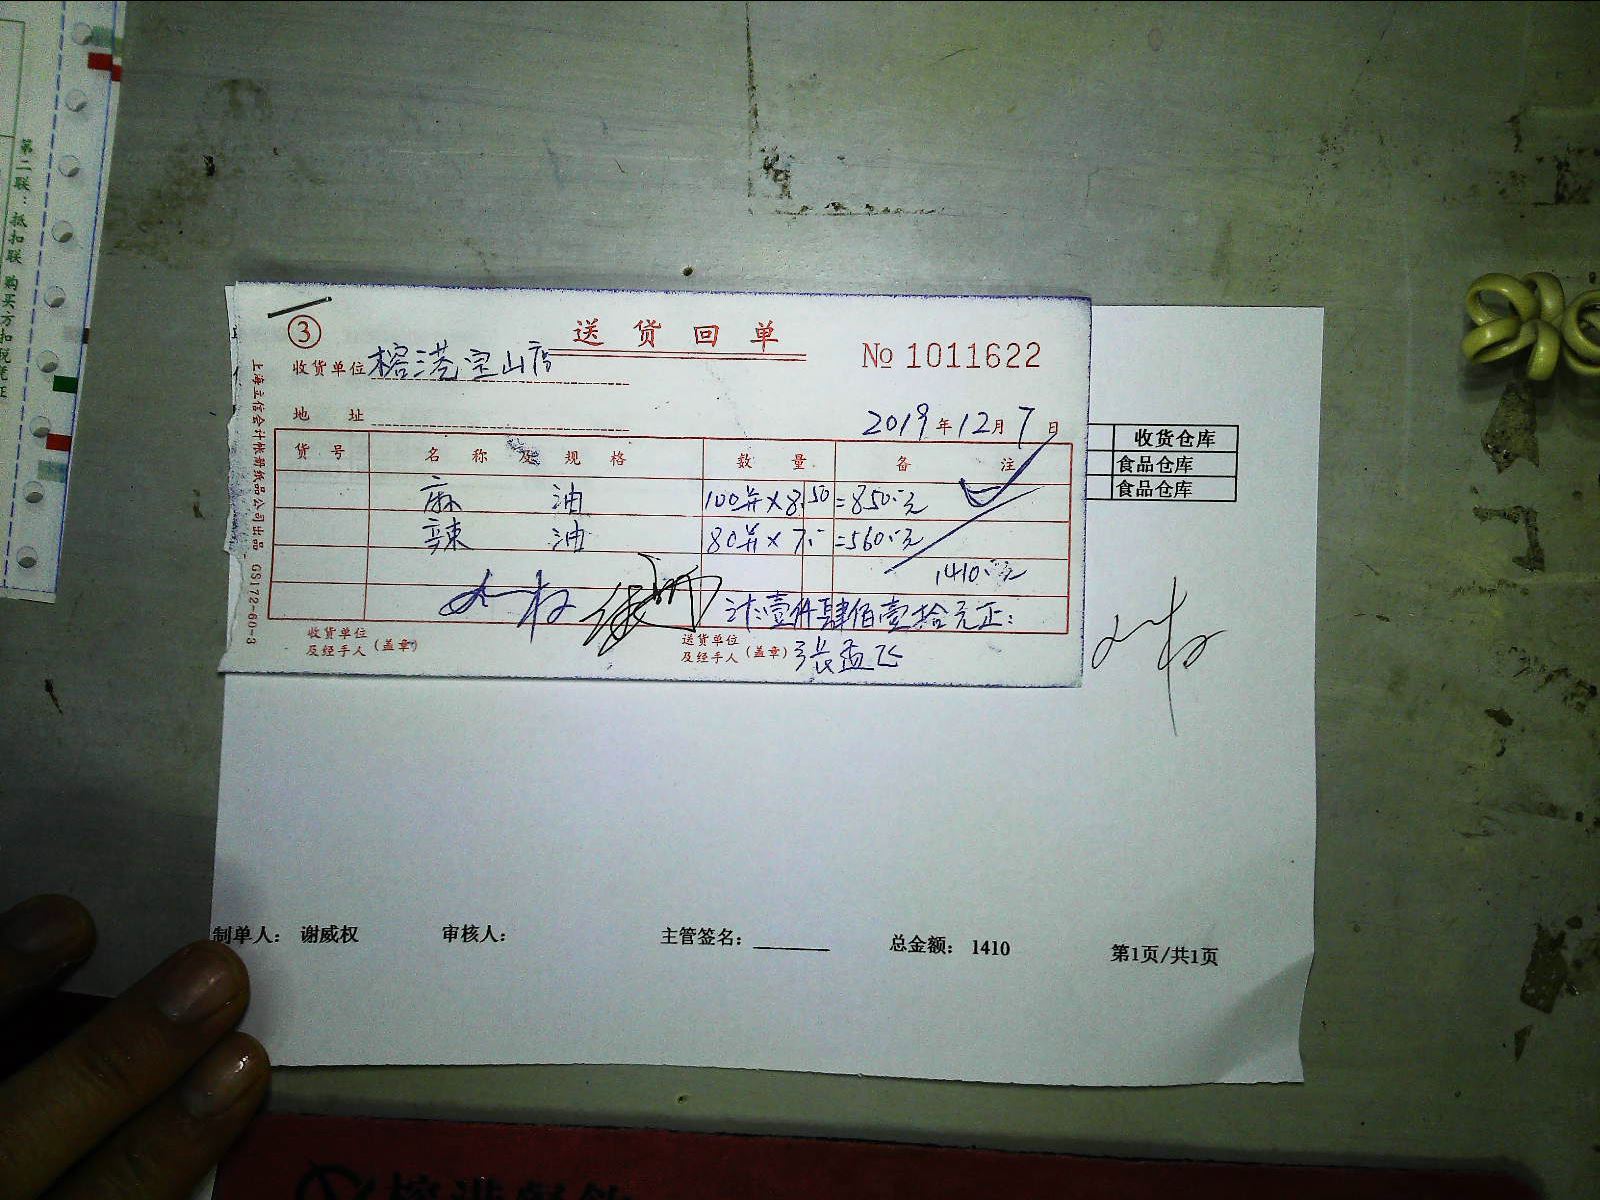 第二联：抵扣联 购买方扣税凭证
③
送货回单
收货单位 榕港宝山店
№ 1011622
地 址
2019年12月7日
货号 名称及规格 数量 备注
麻 油 100斤×8.50=850.-元
辣 油 80斤×7.-=560.-元
1410.-元
计:壹仟肆佰壹拾元正:
收货单位
及经手人(盖章)
送货单位
及经手人(盖章) 张孟飞
上海立信会计帐册纸品公司出品 GS172-60-3
收货仓库
食品仓库
食品仓库
制单人: 谢威权 审核人: 主管签名: 总金额: 1410 第1页/共1页